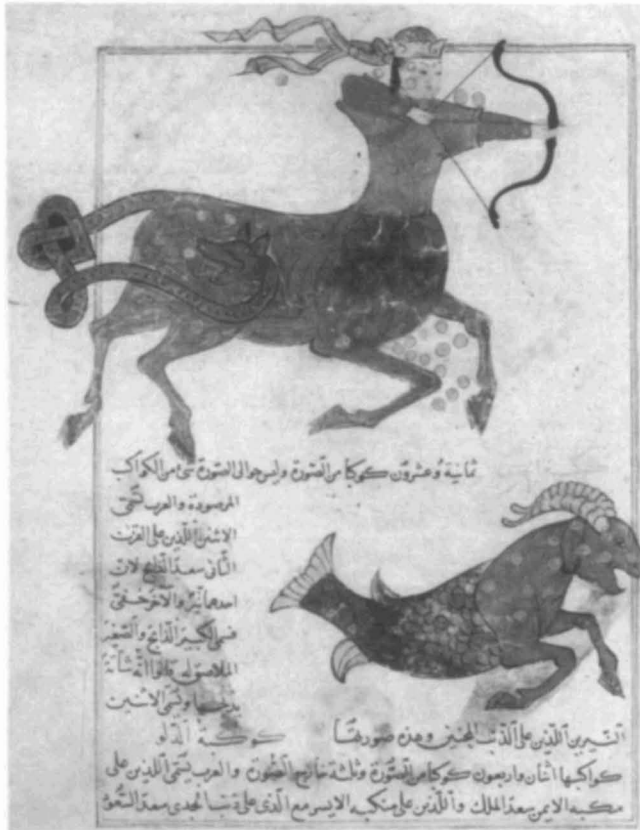 ثمانية وعشرون كوكبا من الصورة وليس حوالى الصورة شئ من الكواكب
المرصودة والعرب تسمى
الاثنين اللذين على القرن
الثانى سعد الذابح لان
احدهما نير والاخر خفى
الملاصق له قالوا انه شاته
يذبحها وتسمى الاثنين
النيرين اللذين على الذنب المحبين وهذه صورتها كوكبة الدلو
كواكبها اثنان واربعون كوكبا من الصورة وثلثة خارج الصورة والعرب تسمى اللذين على
منكبه الايمن سعد الملك واللذين على منكبه الايسر مع الذى على ذنب الجدى سعد السعود